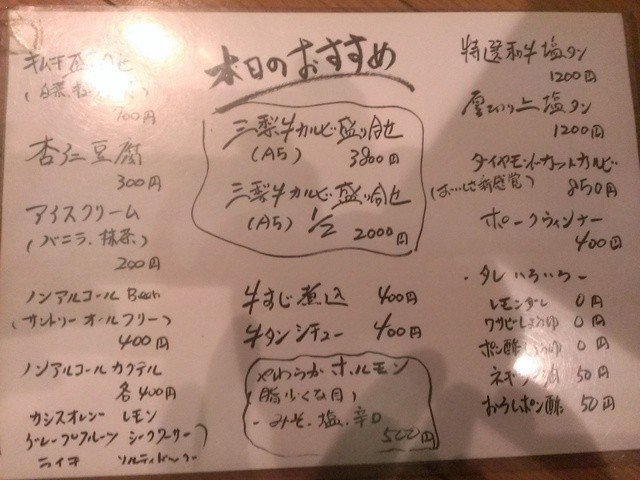 本日のおすすめ
キムチ盛合せ
(白菜、
700円
杏仁豆腐
300円
アイスクリーム
(バニラ、抹茶)
200円
ノンアルコールBeer
(サントリーオールフリー)
400円
ノンアルコールカクテル
各400円
カシスオレンジ レモン
グレープフルーツ シークワーサー)
ライチ ソルティドッグ
三梨牛カルビ盛り合せ
(A5) 3800円
三梨牛カルビ盛り合せ
(A5) 1/2 2000円
牛すじ煮込 400円
牛タンシチュー 400円
やわらかホルモン
(脂少くな目)
-みそ、塩、辛口
500円
特選和牛塩タン
1200円
厚切り上塩タン
1200円
ダイヤモンドカットカルビ
新感覚) 850円
ポークウィンナー
400円
-タレいろいろ-
レモンダレ 0円
ワサビしょうゆ 0円
ポン酢しょうゆ 0円
50円
おろしポン酢 50円